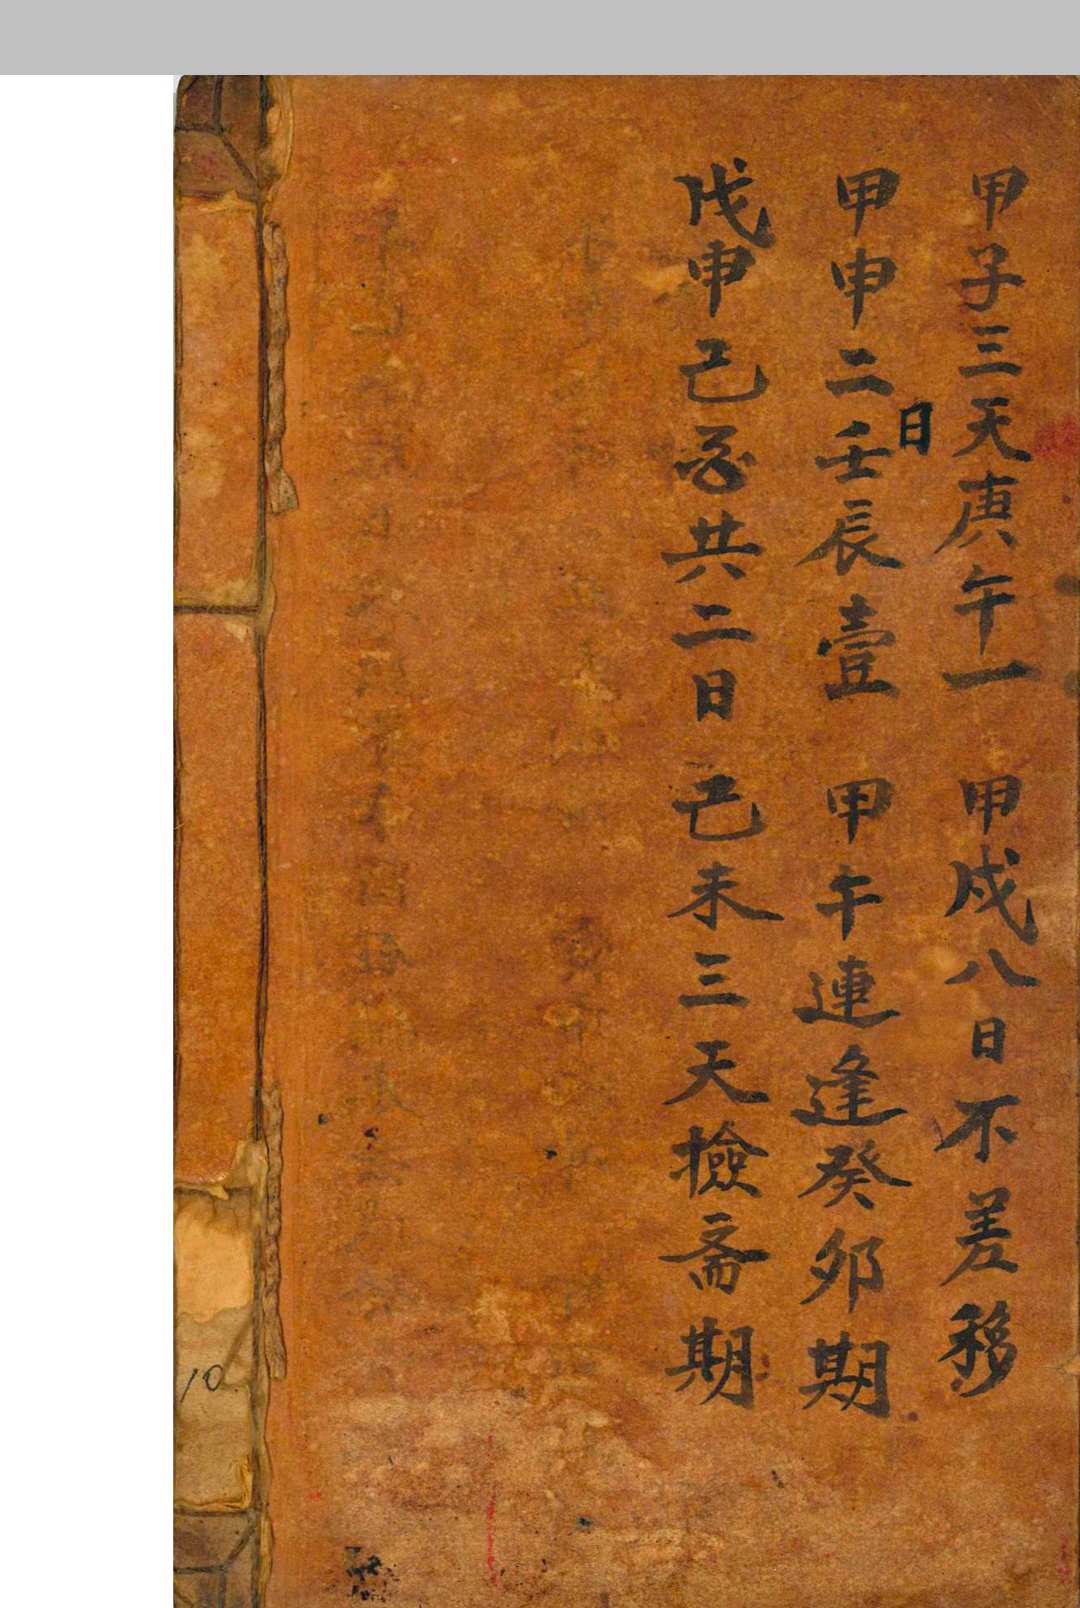 甲子三天庚午一 甲戍八日不差移
甲申二日壬辰壹 甲午連逢癸卯期
戊申己酉共二日 己未三天撿斋期
10